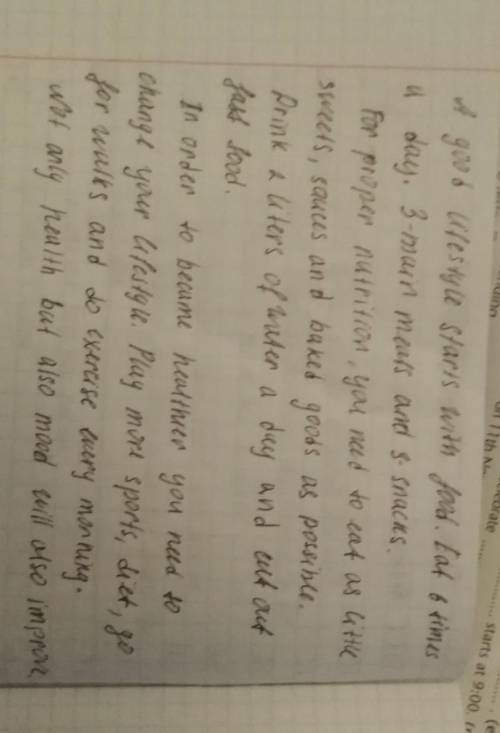 A good lifestyle starts with food. Eat 6 times
a day. 3-main meals and 3-snacks.
For proper nutrition, you need to eat as little
sweets, sauces and baked goods as possible.
Drink 2 liters of water a day and cut out
fast food.
In order to became healthier you need to
change your lifestyle. Play more sports, diet, go
for walks and do exercise every morning.
Not only health but also mood will also improve
starts at 9:00.